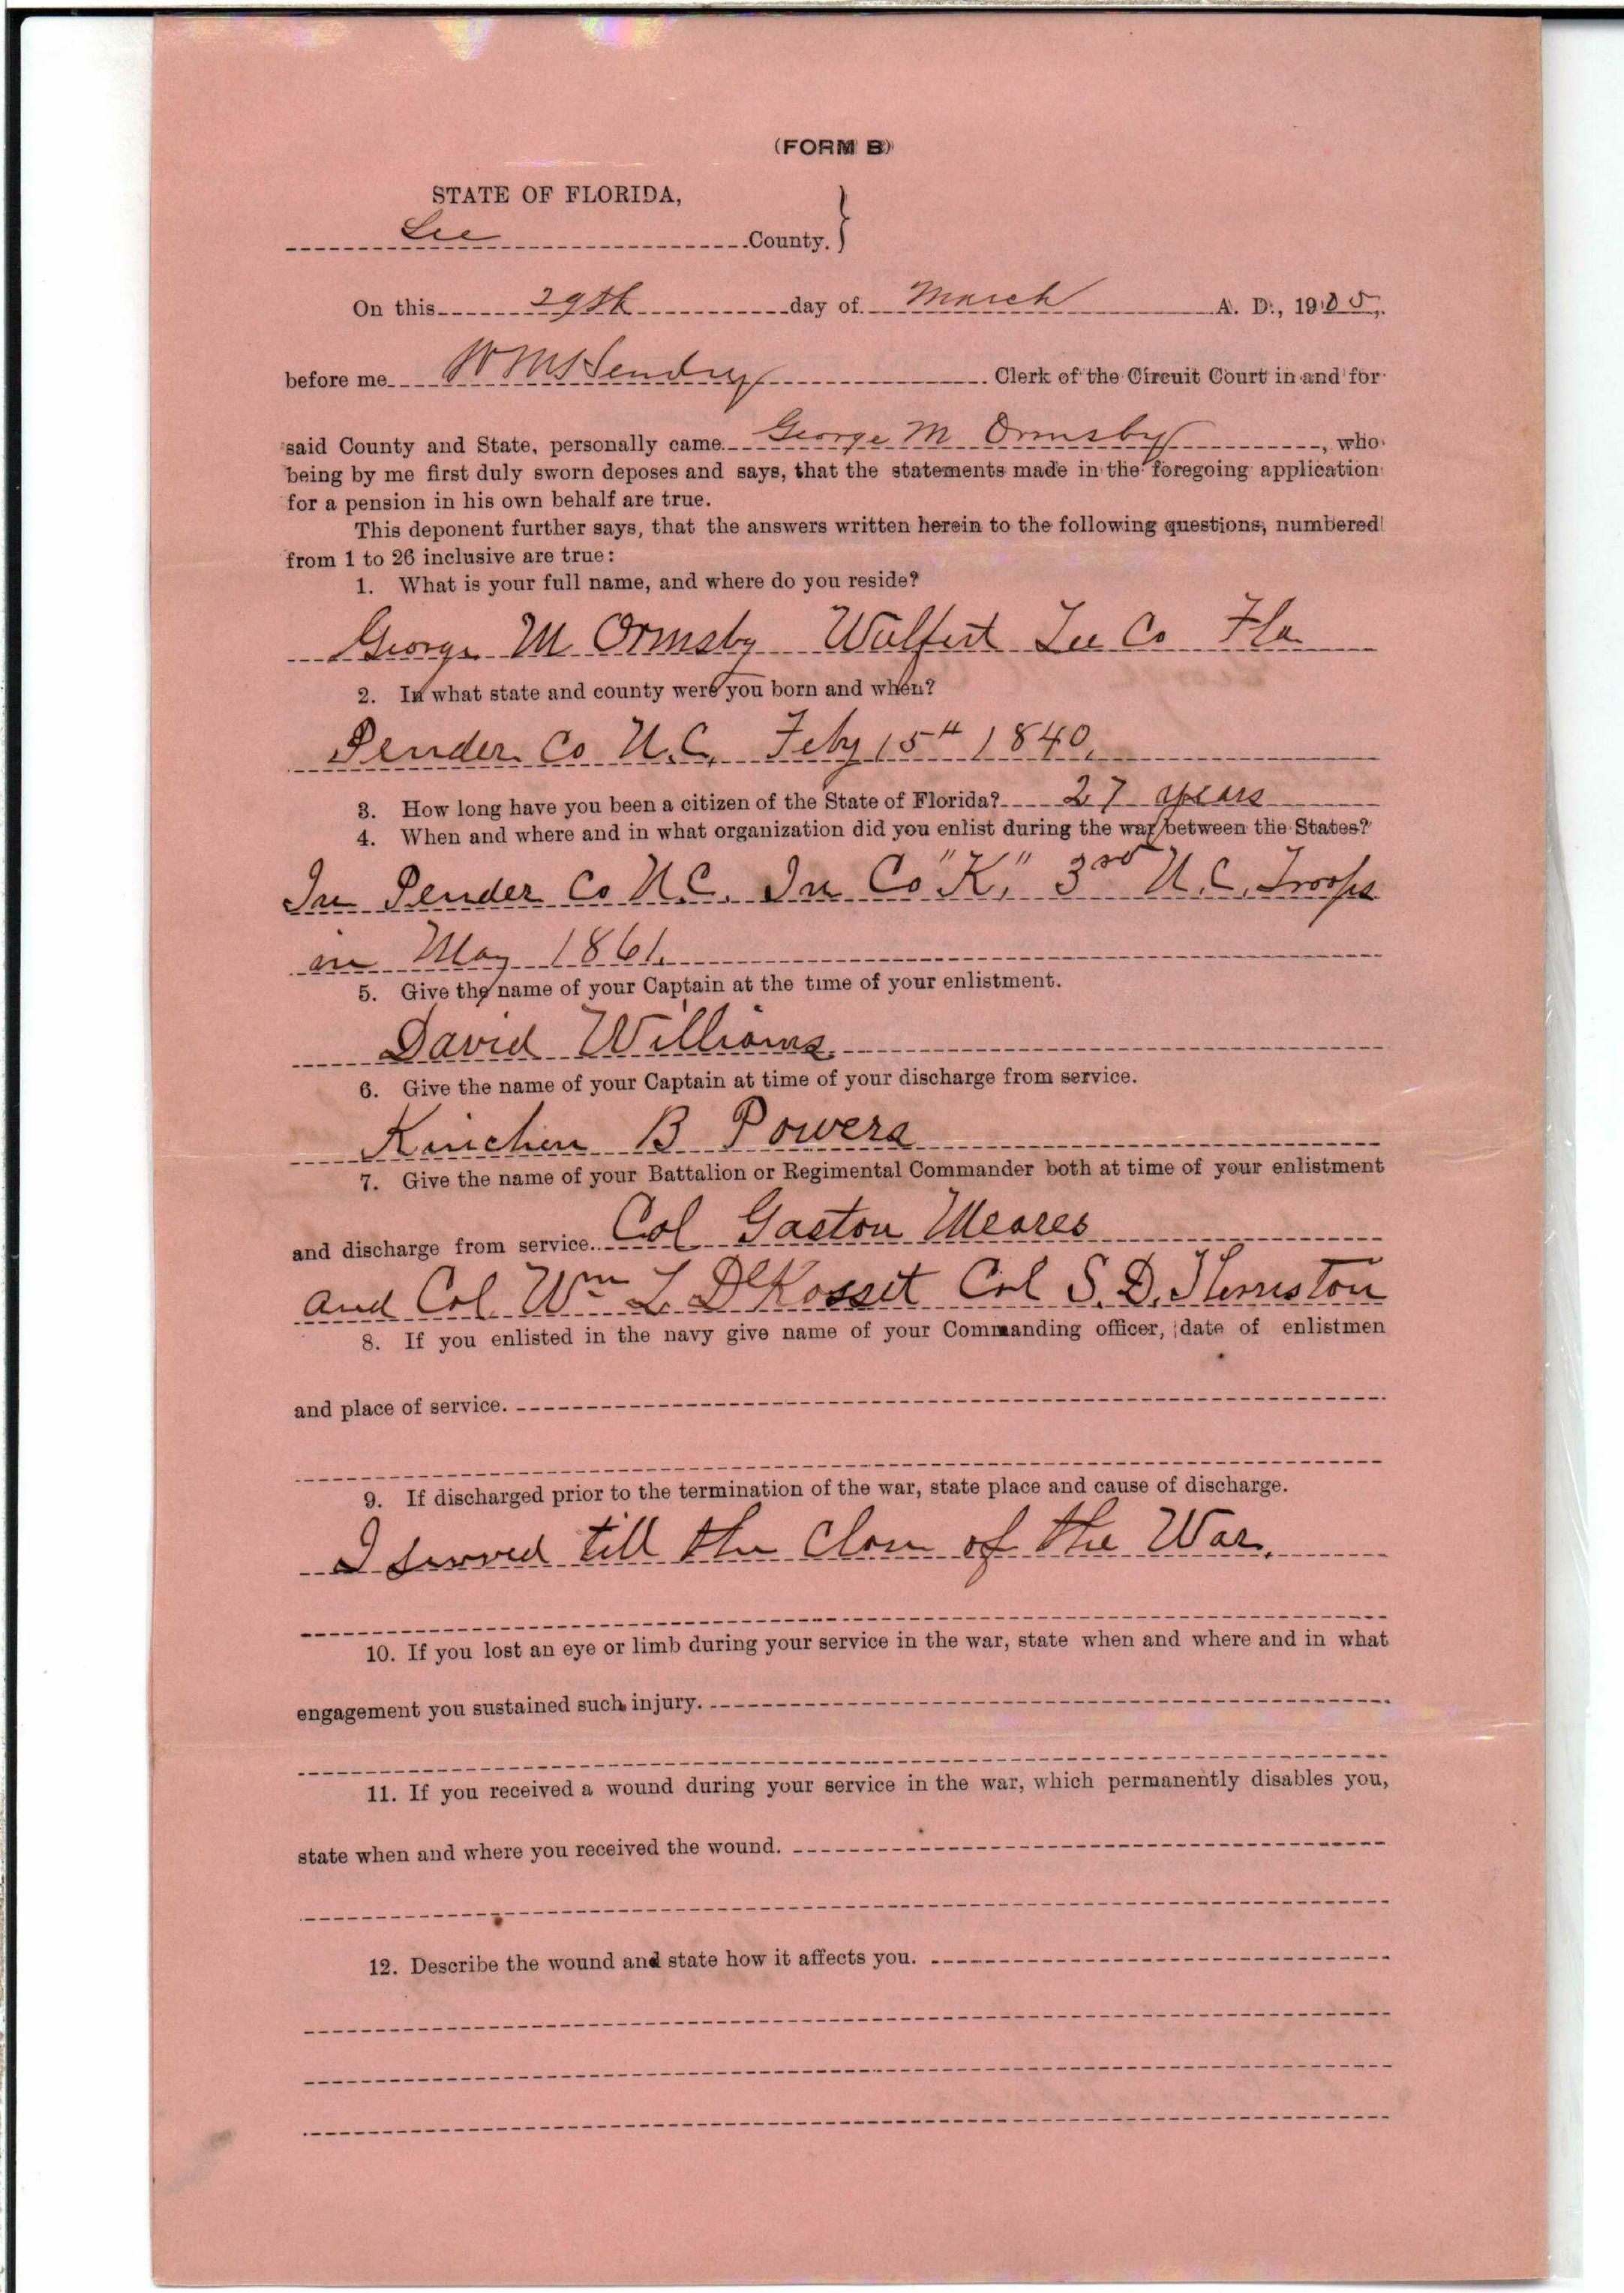 (FORM B)
STATE OF FLORIDA,
Lee County. }
On this 29th day of March A. D., 1905,
before me W M Hendry Clerk of the Circuit Court in and for
said County and State, personally came George M Ormsby, who
being by me first duly sworn deposes and says, that the statements made in the foregoing application
for a pension in his own behalf are true.
This deponent further says, that the answers written herein to the following questions, numbered
from 1 to 26 inclusive are true:
1. What is your full name, and where do you reside?
George M Ormsby Wulfert Lee Co Fla
2. In what state and county were you born and when?
Pender Co N.C. Feby 15th 1840,
3. How long have you been a citizen of the State of Florida? 27 years
4. When and where and in what organization did you enlist during the war between the States?
In Pender Co N.C. In Co "K," 3rd N.C. Troops
in May 1861.
5. Give the name of your Captain at the time of your enlistment.
David Williams.
6. Give the name of your Captain at time of your discharge from service.
Kinchen B Powers
7. Give the name of your Battalion or Regimental Commander both at time of your enlistment
and discharge from service. Col Gaston Meares
and Col Wm L DeRosset Col S. D. Thurston
8. If you enlisted in the navy give name of your Commanding officer, date of enlistmen
and place of service.
9. If discharged prior to the termination of the war, state place and cause of discharge.
I served till the Close of the War.
10. If you lost an eye or limb during your service in the war, state when and where and in what
engagement you sustained such injury.
11. If you received a wound during your service in the war, which permanently disables you,
state when and where you received the wound.
12. Describe the wound and state how it affects you.